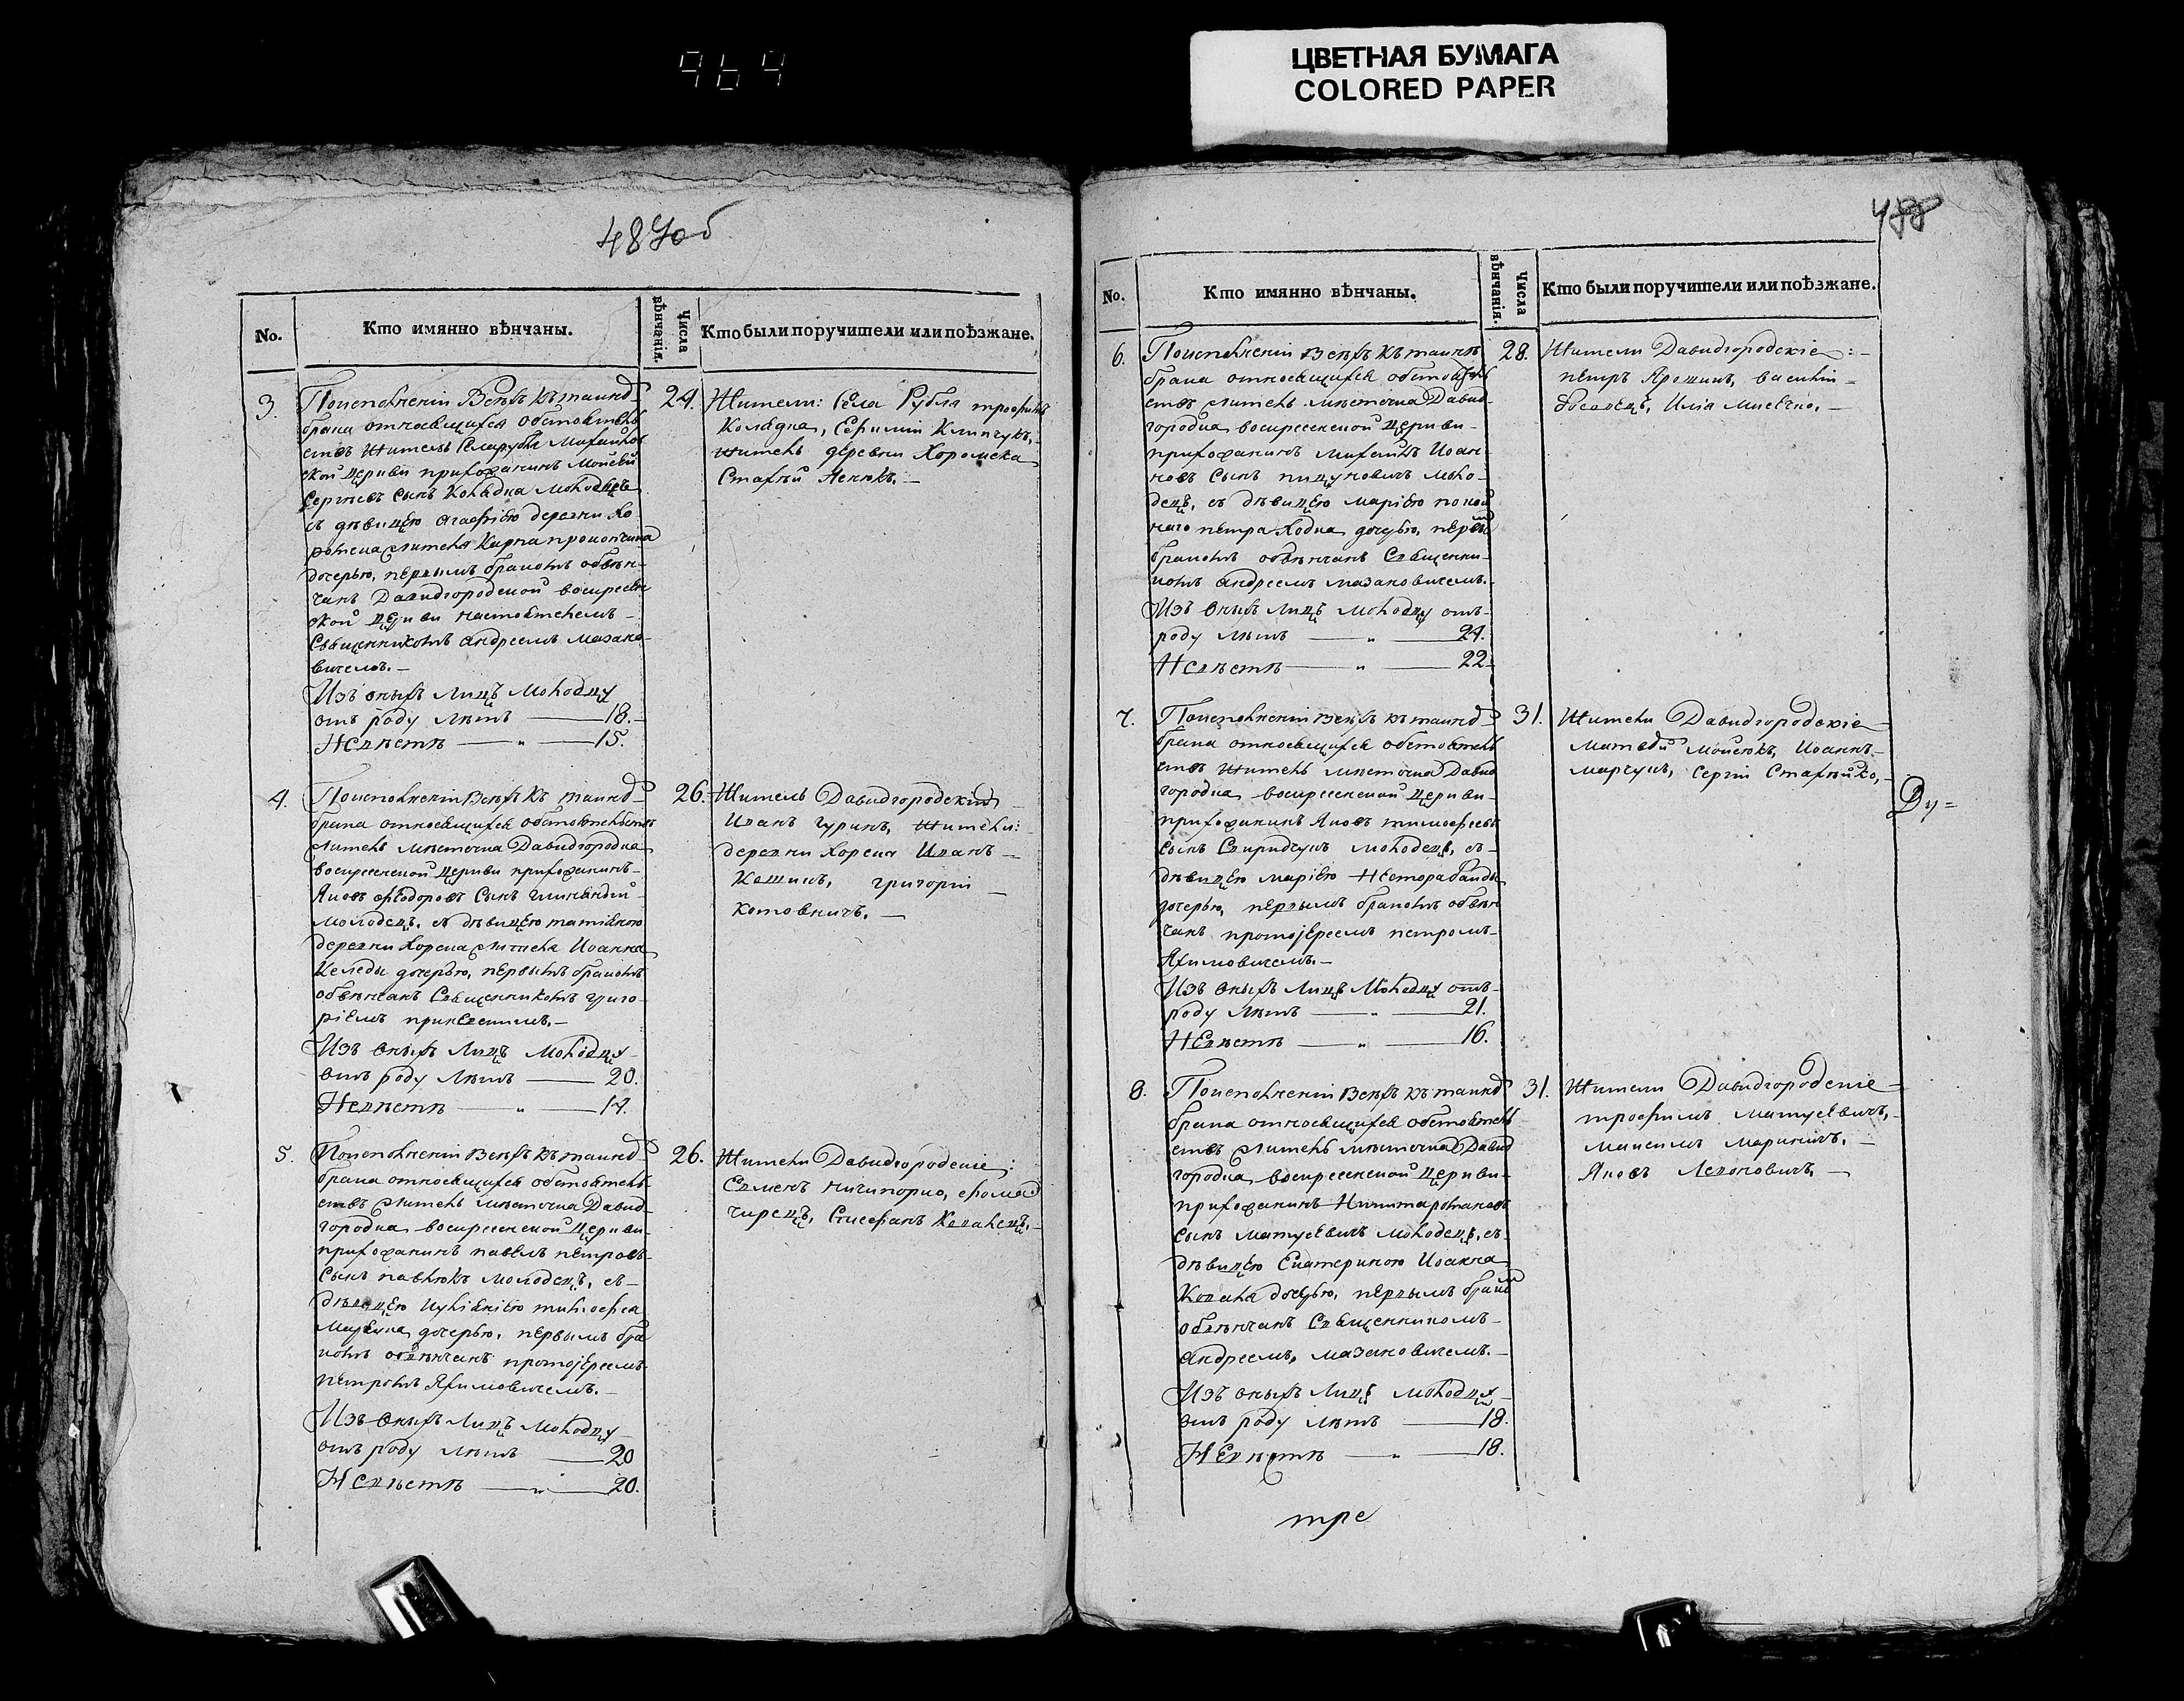 964
ЦВЕТНАЯ БУМАГА
COLORED PAPER
487 об
No.
Кто имянно вѣнчаны.
Числа вѣнчанія.
Кто были поручители или поѣзжане.
3.
По исполненіи Всѣхъ къ таинст
брака относящихся обстоятель
ствъ Житель Села Рубля Михайлов
ской Церкви прихожанинъ Мойсей
Сергѣевъ Сынъ Колядка молодецъ
съ дѣвицею Агафіею деревни Хо
ромска жителя Карпа
дочерью, первымъ бракомъ обвѣн-
чанъ Давидгородской воскресен
ской Церкви настоятелемъ
Священникомъ Андреемъ Мазано-
вичемъ.
Изъ оныхъ Лицъ Молодцу
отъ роду лѣтъ — 18.
Невѣстѣ — „ — 15.
24.
Жители: Села Рубля трофимъ
Колядка, Ефимій Климчукъ,
житель деревни Хоромска
Стахѣй
4.
По исполненіи Всѣхъ къ таинст
брака относящихся обстоятельствъ
житель мѣстечка Давидгородка
воскресенской Церкви прихожанинъ
Яковъ Феодоровъ Сынъ
молодецъ, съ дѣвицею татіяною
деревни Хорска жителя Иоанна
Келеды дочерью, первымъ бракомъ
обвѣнчанъ Священникомъ григо-
ріемъ
Изъ оныхъ Лицъ Молодцу
отъ роду лѣтъ — 20.
Невѣстѣ — „ — 17.
26.
Житель Давидгородскій
Иванъ гуринъ, Жители:
деревни Хорска Иванъ
григорій
Котовичъ.
5.
По исполненіи Всѣхъ къ таинст
брака относящихся обстоятель
ствъ житель мѣстечка Давид-
городка воскресенской Церкви
прихожанинъ павелъ петровъ
Сынъ павлюкъ молодецъ, съ
дѣвицею Иуліяніею тимофея
дочерью, первымъ бра
комъ обвѣнчанъ протоіереемъ
петромъ Яхимовичемъ.
Изъ оныхъ Лицъ Молодцу
отъ роду лѣтъ — 20
Невѣстѣ — „ — 20.
26.
Жители Давидгородскіе:
Семенъ Ничипорко, фома
чирецъ, Стефанъ Ковалецъ.
488
No.
Кто имянно вѣнчаны.
Числа вѣнчанія.
Кто были поручители или поѣзжане.
6.
По исполненіи Всѣхъ къ таинст
брака относящихся обстоятель
ствъ житель мѣстечка Давид-
городка воскресенской Церкви
прихожанинъ Михаилъ Иоан-
новъ Сынъ пицуновичъ моло-
децъ, съ дѣвицею Маріею покой
наго петра Ходка дочерью, первы
бракомъ обвѣнчанъ Священни-
комъ Андреемъ Мазановичемъ.
Изъ оныхъ Лицъ Молодцу отъ
роду лѣтъ — „ — 24.
Невѣстѣ — „ — 22.
28.
Жители Давидгородскіе:
петръ Ярошикъ, василій
Илія Мисечко.
7.
По исполненіи Всѣхъ къ таинст
брака относящихся обстоятель
ствъ Житель мѣстечка Давид
городка воскресенской Церкви
прихожанинъ Яковъ тимофеевъ
Сынъ Спиридчукъ молодецъ, съ
дѣвицею Маріею Нестора
дочерью, первымъ бракомъ обвѣн
чанъ протоіереемъ петромъ
Яхимовичемъ.
Изъ оныхъ Лицъ Молодцу отъ
роду лѣтъ — „ — 21.
Невѣстѣ — „ — 16.
31.
Жители Давидгородскіе
матвѣй Мойсюкъ, Иоаннъ
марчукъ, Сергій Стахѣйко,
Ву=
8.
По исполненіи Всѣхъ къ таинст
брака относящихся обстоятель
ствъ житель мѣстечка Давид
городка воскресенской Церкви
прихожанинъ Никита романовъ
Сынъ Матусевичъ молодецъ, съ
дѣвицею Екатериною Иоанна
Коваля дочерью, первымъ брако
обвѣнчанъ Священникомъ
Андреемъ Мазановичемъ.
Изъ оныхъ Лицъ Молодцу
отъ роду лѣтъ — 18.
Невѣстѣ — „ — 18.
31.
Жители Давидгородскіе
трофимъ Матусевичъ,
максимъ Мариничъ.
Яковъ Леоновичъ,
тре